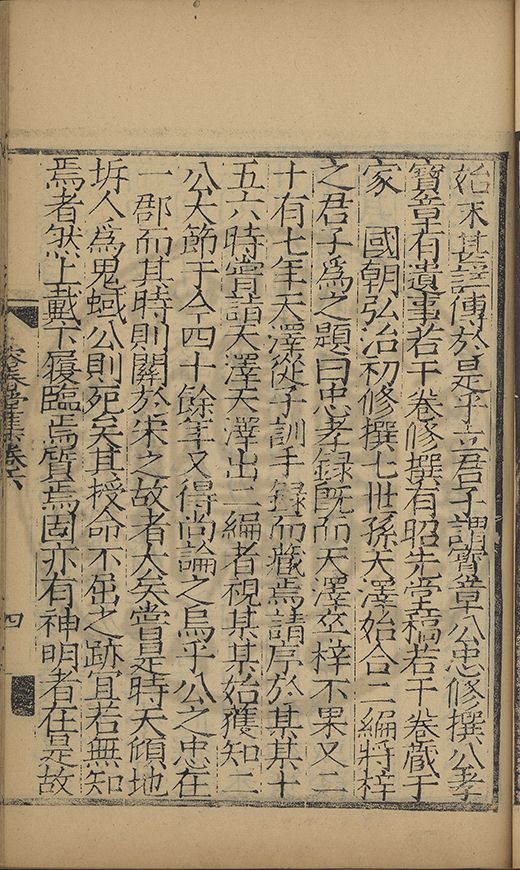 始末甚詳傳於是乎立君子謂寶章公忠修撰公孝
寶章有遺事若干卷修撰有昭先堂稿若干卷藏于
家　國朝弘治初修撰七世孫天澤始合二編將梓
之君子爲之題曰忠孝録既而天澤卒梓不果又二
十有七年天澤從子訓手録而藏焉請序於某某十
五六時嘗詣天澤天澤出二編者視某某始獲知二
公大節于今四十餘年又得尚論之烏乎公之忠在
一郡而其時則關於宋之故者大矣當是時天傾地
坼人爲鬼蜮公則死矣其授命不屈之跡宜若無知
焉者然上戴下履臨焉質焉固亦有神明者在是故
集卷六
四